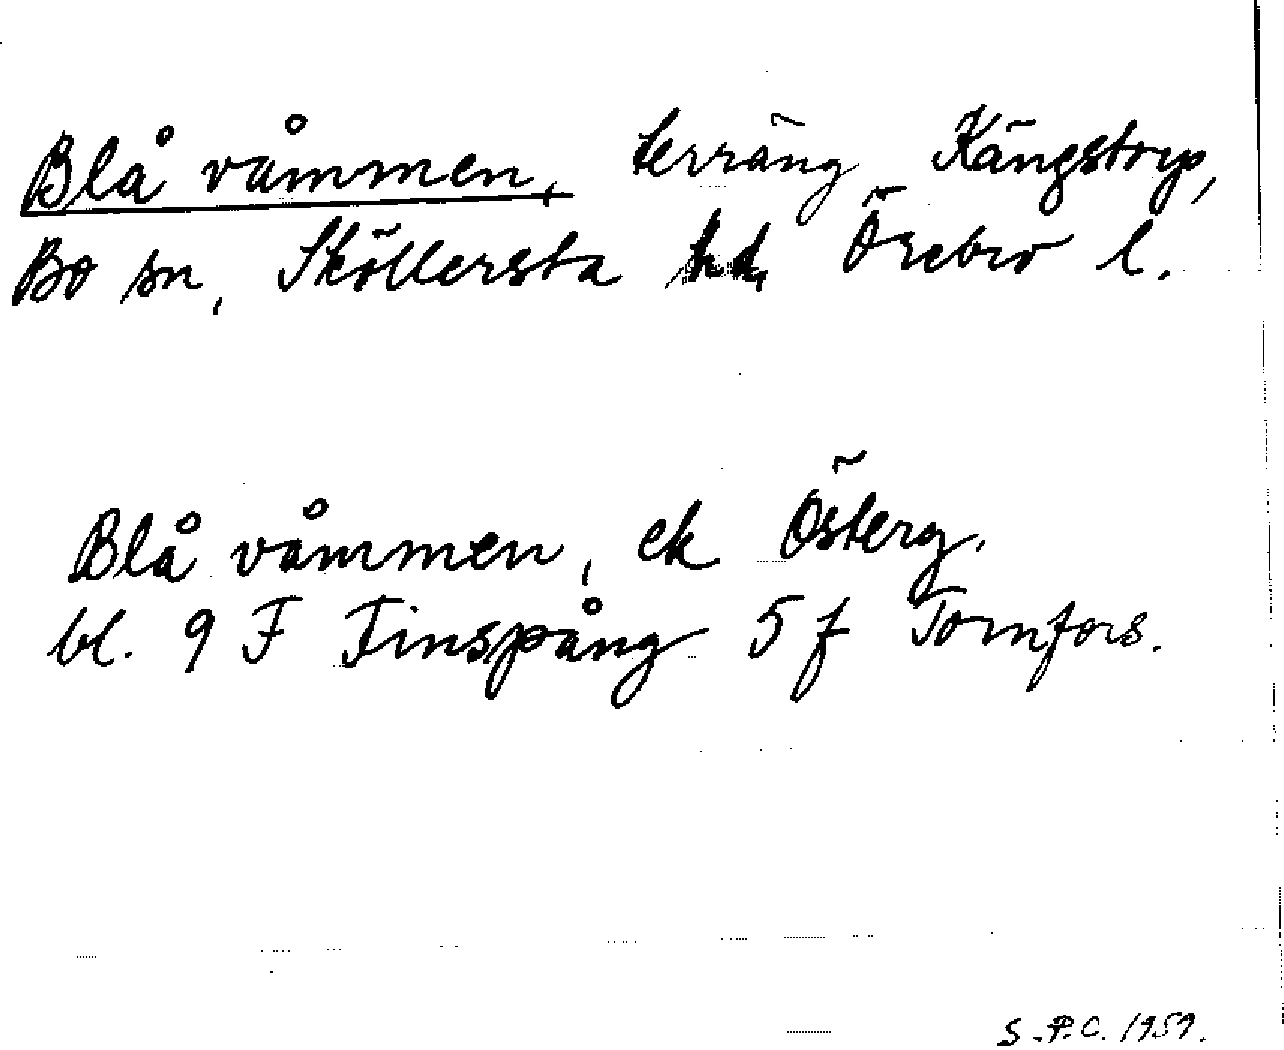 Blå våmmen, terräng Kängstorp,
Bo sn, Sköllersta hd, Örebro l.
Blå våmmen, ek Österg.
bl. 9 F Finspång 5 f Tomfors.
S.P.C. 1959.